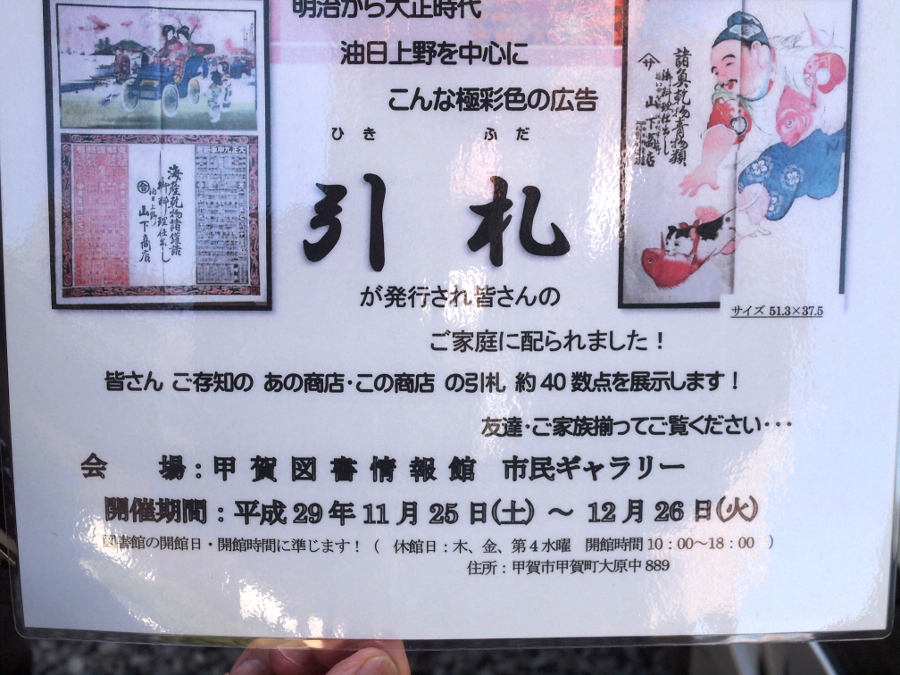 明治から大正時代
油日上野を中心に
こんな極彩色の広告
ひき ふだ
引 札
が発行され皆さんの
ご家庭に配られました！
諸真乾物青物類
山下商店
海産乾物諸罐詰
御料理仕出し
油日上野
山下商店
サイズ 51.3×37.5
皆さん ご存知の あの商店・この商店 の引札 約40数点を展示します！
友達・ご家族揃ってご覧ください･･･
会 場：甲賀図書情報館 市民ギャラリー
開催期間：平成29年11月25日(土) ～ 12月26日(火)
図書館の開館日・開館時間に準じます！（ 休館日：木、金、第4水曜 開館時間10：00～18：00 ）
住所：甲賀市甲賀町大原中889